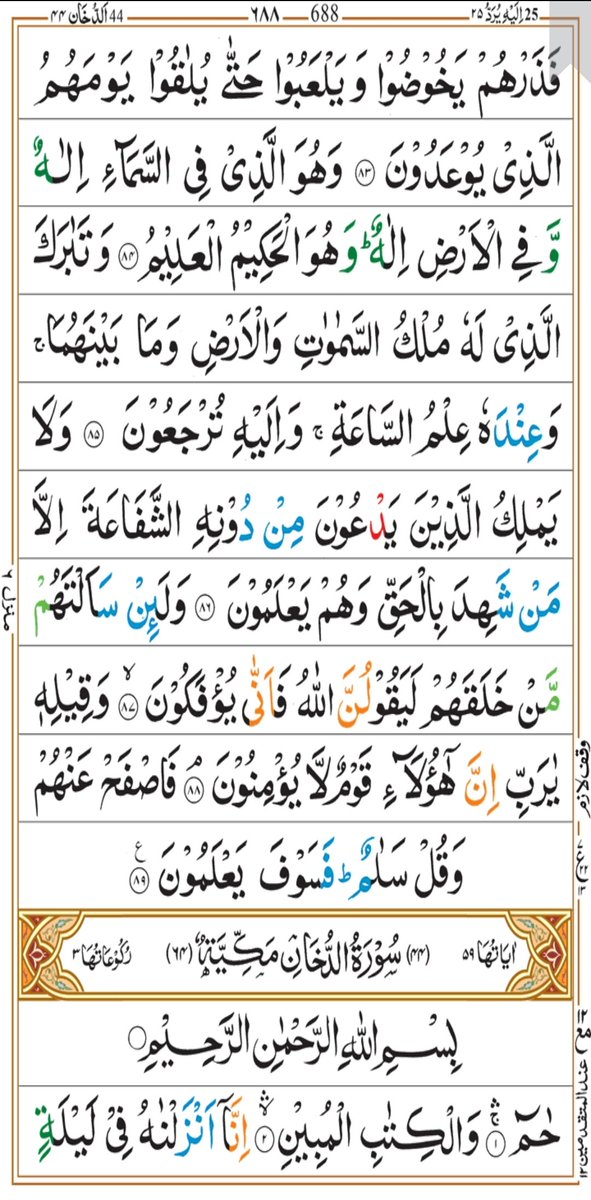 25 اِلَيْهِ يُرَدُّ ٢٥ 688 ٦٨٨ 44 اَلدُّخَان ٤٤
فَذَرْهُمْ يَخُوْضُوْا وَ يَلْعَبُوْا حَتّٰى يُلٰقُوْا يَوْمَهُمُ
الَّذِىْ يُوْعَدُوْنَ ۝٨٣ وَهُوَ الَّذِىْ فِى السَّمَآءِ اِلٰهٌ
وَّ فِى الْاَرْضِ اِلٰهٌ ؕ وَ هُوَ الْحَكِيْمُ الْعَلِيْمُ ۝٨٤ وَ تَبٰرَكَ
الَّذِىْ لَهٗ مُلْكُ السَّمٰوٰتِ وَالْاَرْضِ وَمَا بَيْنَهُمَا ۚ
وَ عِنْدَهٗ عِلْمُ السَّاعَةِ ۚ وَ اِلَيْهِ تُرْجَعُوْنَ ۝٨٥ وَ لَا
يَمْلِكُ الَّذِيْنَ يَدْعُوْنَ مِنْ دُوْنِهِ الشَّفَاعَةَ اِلَّا
مَنْ شَهِدَ بِالْحَقِّ وَهُمْ يَعْلَمُوْنَ ۝٨٦ وَلَئِنْ سَاَلْتَهُمْ
مَّنْ خَلَقَهُمْ لَيَقُوْلُنَّ اللّٰهُ فَاَنّٰى يُؤْفَكُوْنَ ۝٨٧ۙ وَقِيْلِهٖ
يٰرَبِّ اِنَّ هٰٓؤُلَآءِ قَوْمٌ لَّا يُؤْمِنُوْنَ ۝٨٨ۘ فَاصْفَحْ عَنْهُمْ
وَقُلْ سَلٰمٌ ؕ فَسَوْفَ يَعْلَمُوْنَ ۝٨٩ ع
اٰيَاتُهَا ٥٩ (٤٤) سُوْرَةُ الدُّخَانِ مَكِّيَّةٌ (٦٤) رُكُوْعَاتُهَا ٣
بِسْمِ اللّٰهِ الرَّحْمٰنِ الرَّحِيْمِ ۝
حٰمٓ ۝١ۚۛ وَالْكِتٰبِ الْمُبِيْنِ ۝٢ۙۛ اِنَّاۤ اَنْزَلْنٰهُ فِىْ لَيْلَةٍ
منزل ٦
وقف لازم
مع ١٢
عند المتقدمين ١٢